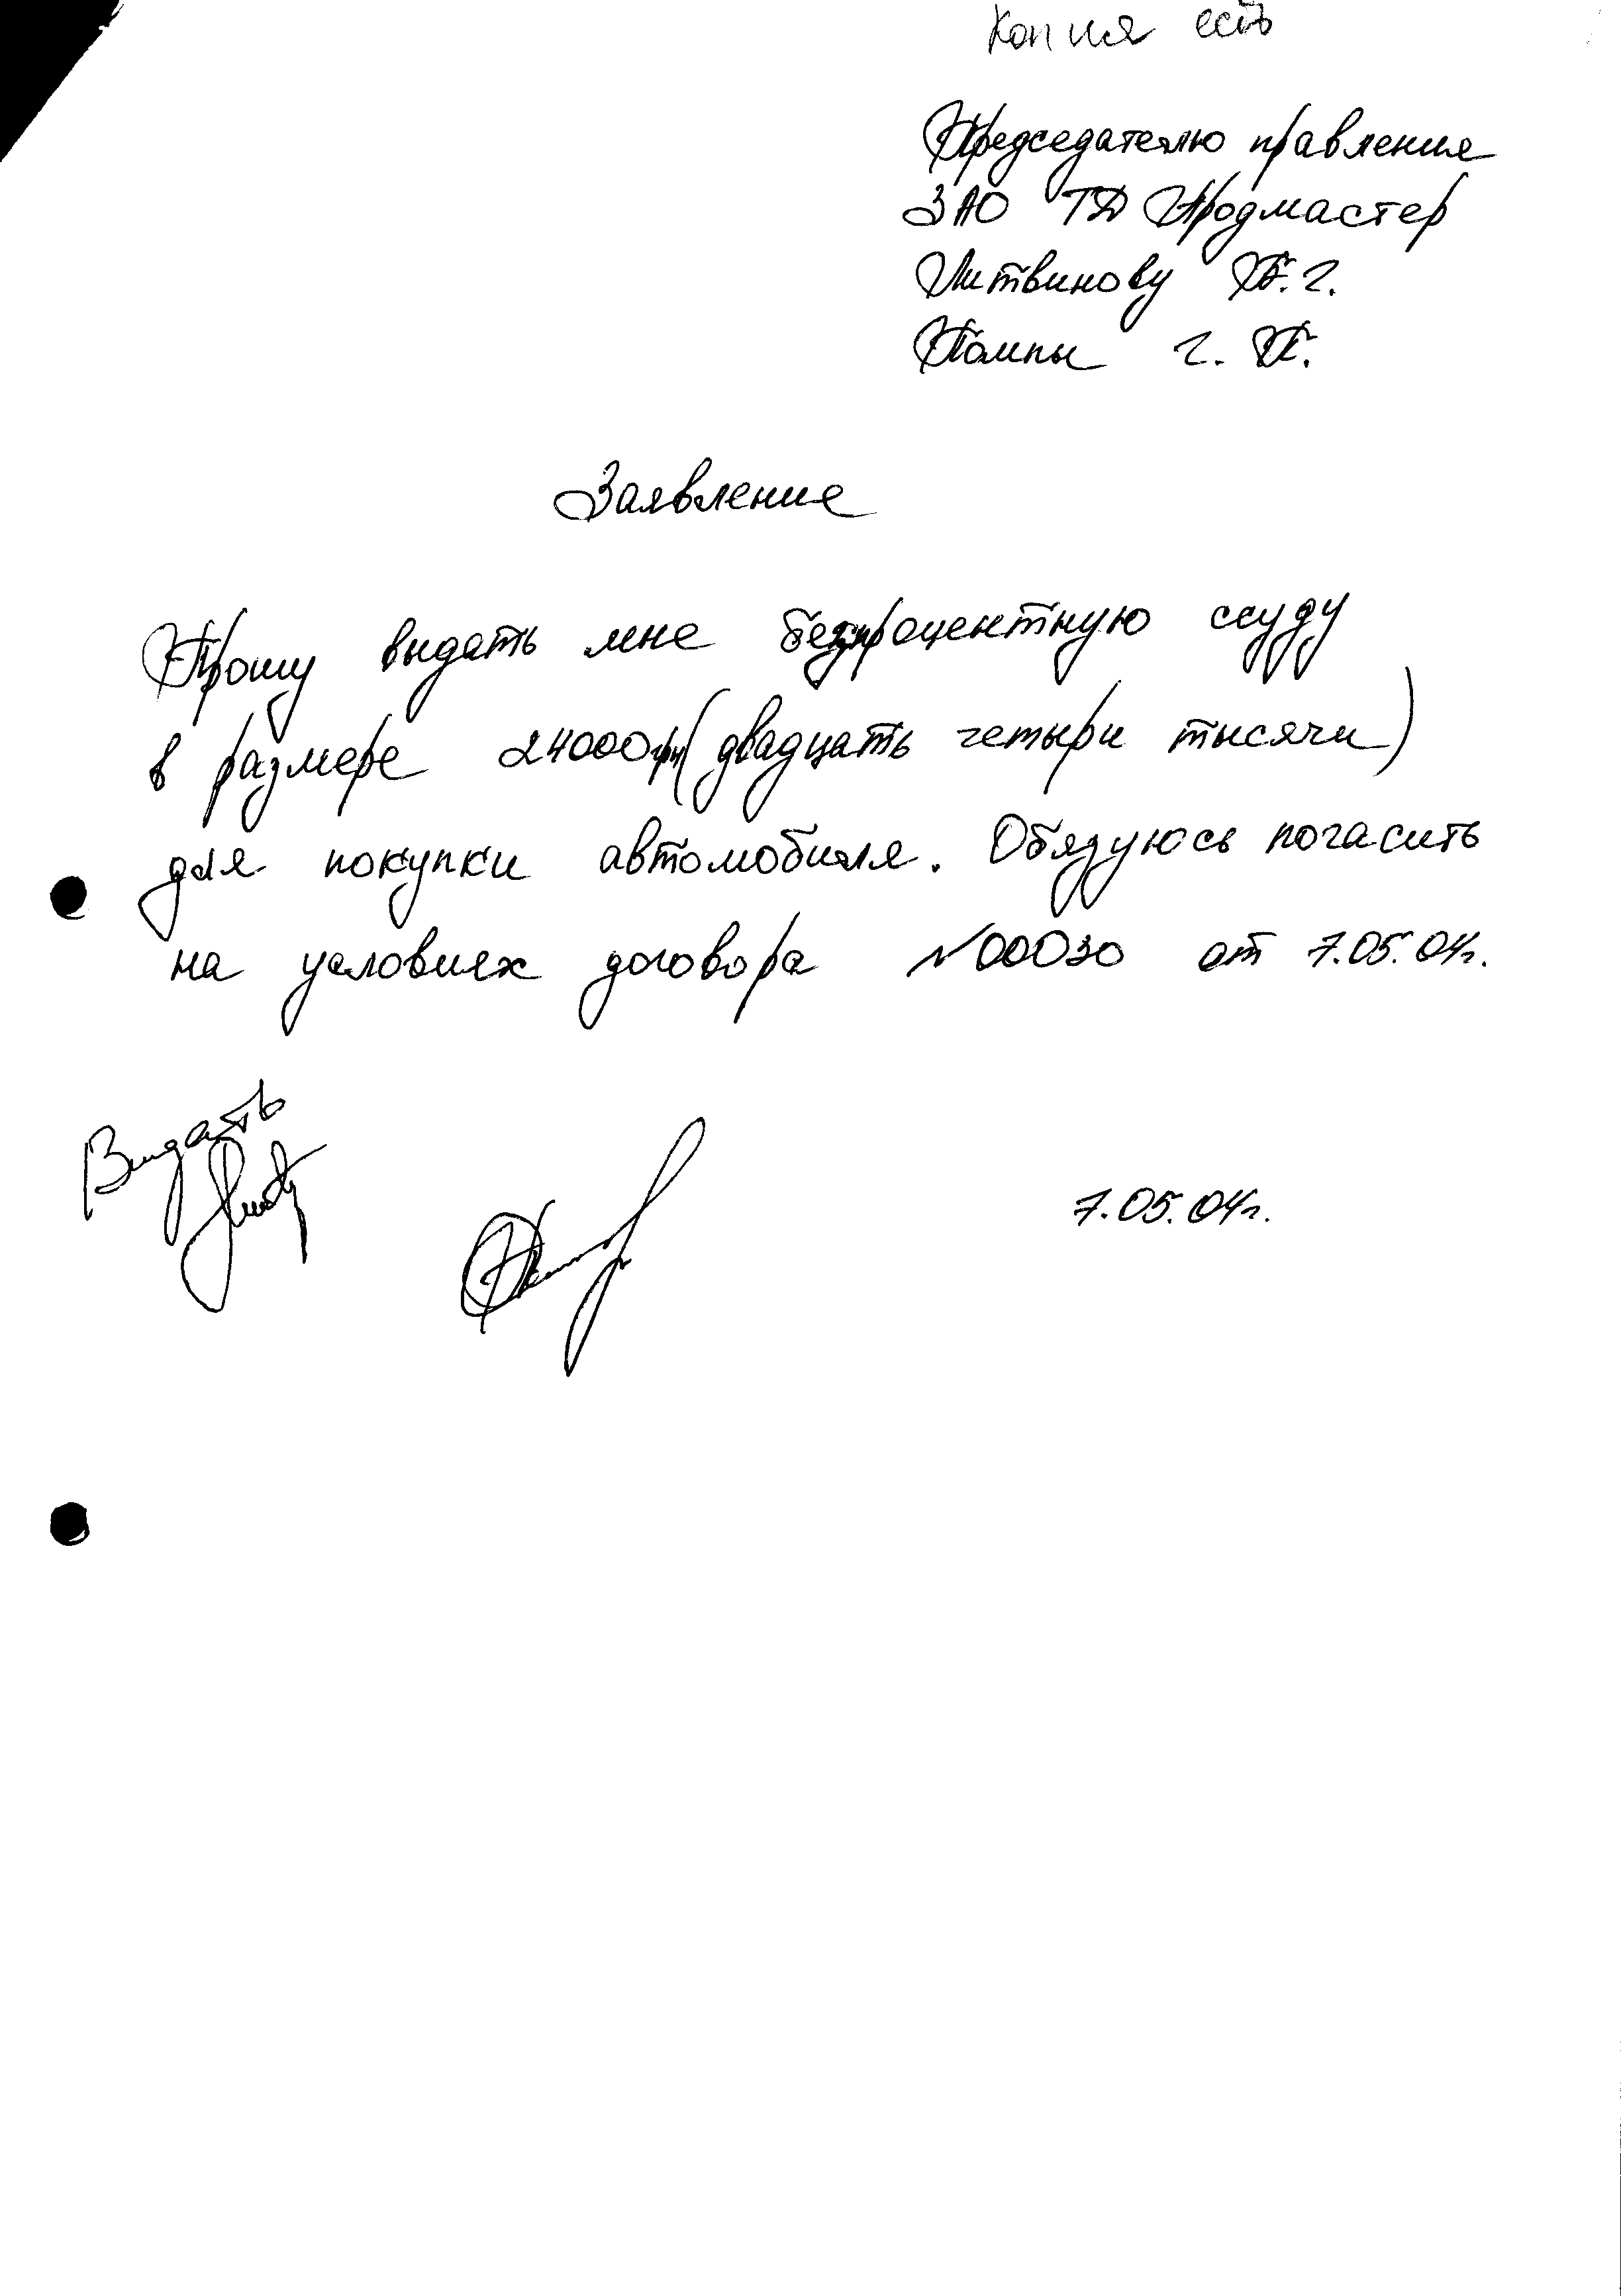 Копия есть
Председателю правления
ЗАО ТД Продмастер
Литвинову Б.Г.
Помпы Г. П.
Заявление
Прошу выдать мне безпроцентную ссуду
в размере 24000грн(двадцать четыри тысячи)
для покупки автомобиля. Обязуюсь погасить
на условиях договора №00030 от 7.05.04г.
Выдать
7.05.04г.